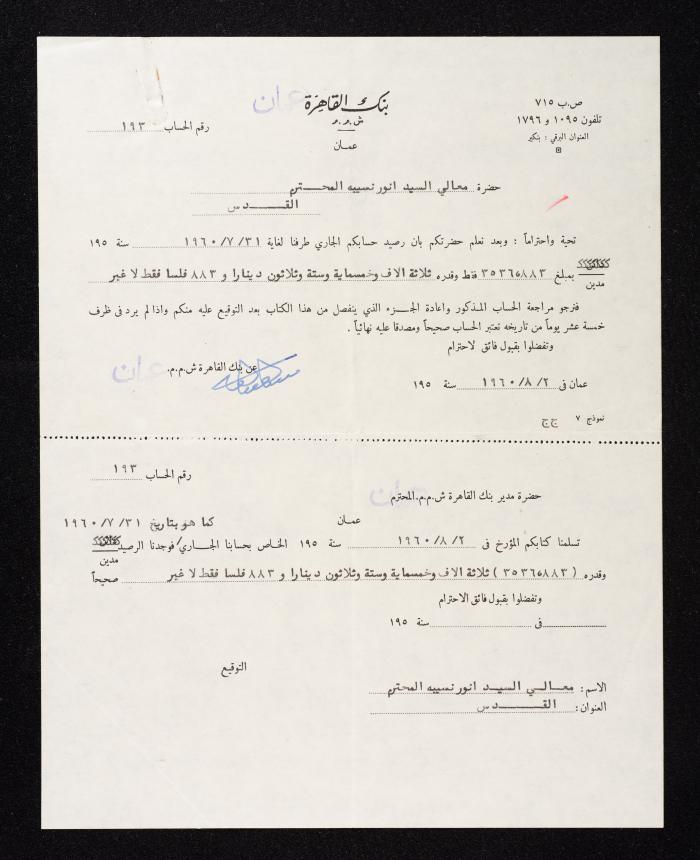 عمان
بنك القاهرة
ش.م.م
عمان
ص.ب ٧١٥
تلفون ١٠٩٥ و ١٧٩٦
العنوان البرقي : بنكير
رقم الحساب ١٩٣
حضرة معالي السيد انور نسيبه المحـــترم
القـــــدس
تحية واحتراماً : وبعد نعلم حضرتكم بان رصيد حسابكم الجاري طرفنا لغاية ١٩٦٠/٧/٣١ سنة ١٩٥
مدين
بمبلغ ٣٥٣٦٥٨٨٣ فقط وقدره ثلاثة الاف وخمسماية وستة وثلاثون دينارا و ٨٨٣ فلسا فقط لا غير
فنرجو مراجعة الحساب المذكور واعادة الجـــزء الذي ينفصل من هذا الكتاب بعد التوقيع عليه منكم واذا لم يرد في ظرف
خمسة عشر يوماً من تاريخه نعتبر الحساب صحيحاً ومصدقا عليه نهائياً .
وتفضلوا بقبول فائق لاحترام
عن بنك القاهرة ش.م.م.
عمان
عمان في ١٩٦٠/٨/٢ سنة ١٩٥
نموذج ٧ ج ج
رقم الحساب ١٩٣
عمان
حضرة مدير بنك القاهرة ش.م.م. المحترم
عمان
كما هو بتاريخ ١٩٦٠/٧/٣١
تسلمنا كتابكم المؤرخ في ١٩٦٠/٨/٢ سنة ١٩٥ الخاص بحسابنا الجـــاري/فوجدنا الرصيد
مدين
وقدره ( ٣٥٣٦٥٨٨٣ ) ثلاثة الاف وخمسماية وستة وثلاثون دينارا و ٨٨٣ فلسا فقط لا غير صحيحاً
وتفضلوا بقبول فائق الاحترام
في سنة ١٩٥
التوقيع
الاسم : معـــالي السيـــد انور نسيبه المحترم
العنوان : القـــــدس